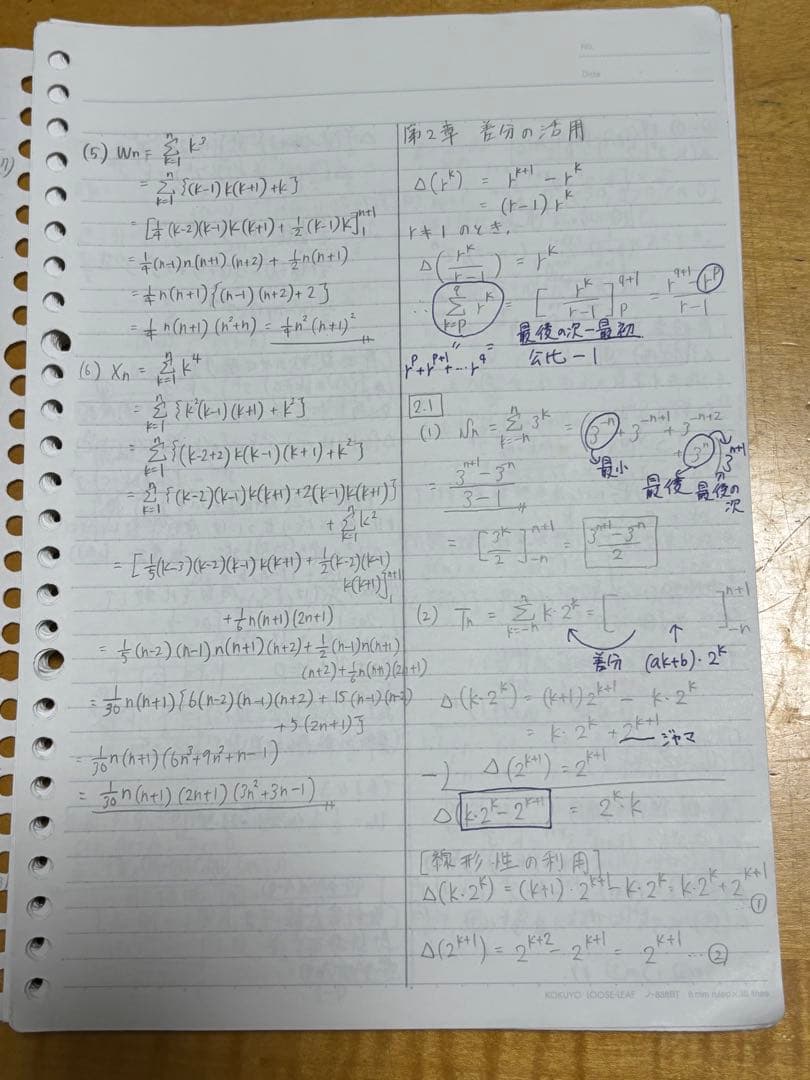 No.
Date
(5) Wn = Σ_{k=1}^{n} k³
= Σ_{k=1}^{n} {(k-1)k(k+1)+k}
= [1/4 (k-2)(k-1)k(k+1) + 1/2 (k-1)k]_1^{n+1}
= 1/4 (n-1)n(n+1)(n+2) + 1/2 n(n+1)
= 1/4 n(n+1){(n-1)(n+2)+2}
= 1/4 n(n+1)(n²+n) = 1/4 n²(n+1)²
(6) Xn = Σ_{k=1}^{n} k⁴
= Σ_{k=1}^{n} {k²(k-1)(k+1)+k²}
= Σ_{k=1}^{n} {(k-2+2)k(k-1)(k+1)+k²}
= Σ_{k=1}^{n} {(k-2)(k-1)k(k+1)+2(k-1)k(k+1)}
+ Σ_{k=1}^{n} k²
= [1/5 (k-3)(k-2)(k-1)k(k+1) + 1/2 (k-2)(k-1)
k(k+1)]_1^{n+1}
+ 1/6 n(n+1)(2n+1)
= 1/5 (n-2)(n-1)n(n+1)(n+2) + 1/2 (n-1)n(n+1)
(n+2) + 1/6 n(n+1)(2n+1)
= 1/30 n(n+1){6(n-2)(n-1)(n+2) + 15(n-1)(n-2)
+ 5(2n+1)}
= 1/30 n(n+1)(6n³+9n²+n-1)
= 1/30 n(n+1)(2n+1)(3n²+3n-1)
第2章 差分の活用
Δ(r^k) = r^{k+1} - r^k
= (r-1)r^k
r≠1のとき,
Δ(r^k/(r-1)) = r^k
∴ Σ_{k=p}^{q} r^k = [r^k/(r-1)]_p^{q+1} = (r^{q+1} - r^p)/(r-1)
〃
r^p+r^{p+1}+…r^q = 最後の次-最初/公比-1
2.1
(1) Sn = Σ_{k=-n}^{n} 3^k = (3^{-n} + 3^{-n+1} + 3^{-n+2}
+ 3^n) 3^{n+1}
最小 最後 最後の次
= (3^{n+1} - 3^{-n})/(3-1)
= [3^k/2]_{-n}^{n+1} = (3^{n+1} - 3^{-n})/2
(2) Tn = Σ_{k=-n}^{n} k·2^k = [ ]_{-n}^{n+1}
差分 (ak+b)·2^k
Δ(k·2^k) = (k+1)2^{k+1} - k·2^k
= k·2^k + 2^{k+1} ジャマ
-) Δ(2^{k+1}) = 2^{k+1}
Δ(k·2^k - 2^{k+1}) = 2^k·k
[線形性の利用]
Δ(k·2^k) = (k+1)·2^{k+1} - k·2^k = k·2^k + 2^{k+1}
①
Δ(2^{k+1}) = 2^{k+2} - 2^{k+1} = 2^{k+1} …②
KOKUYO LOOSE-LEAF